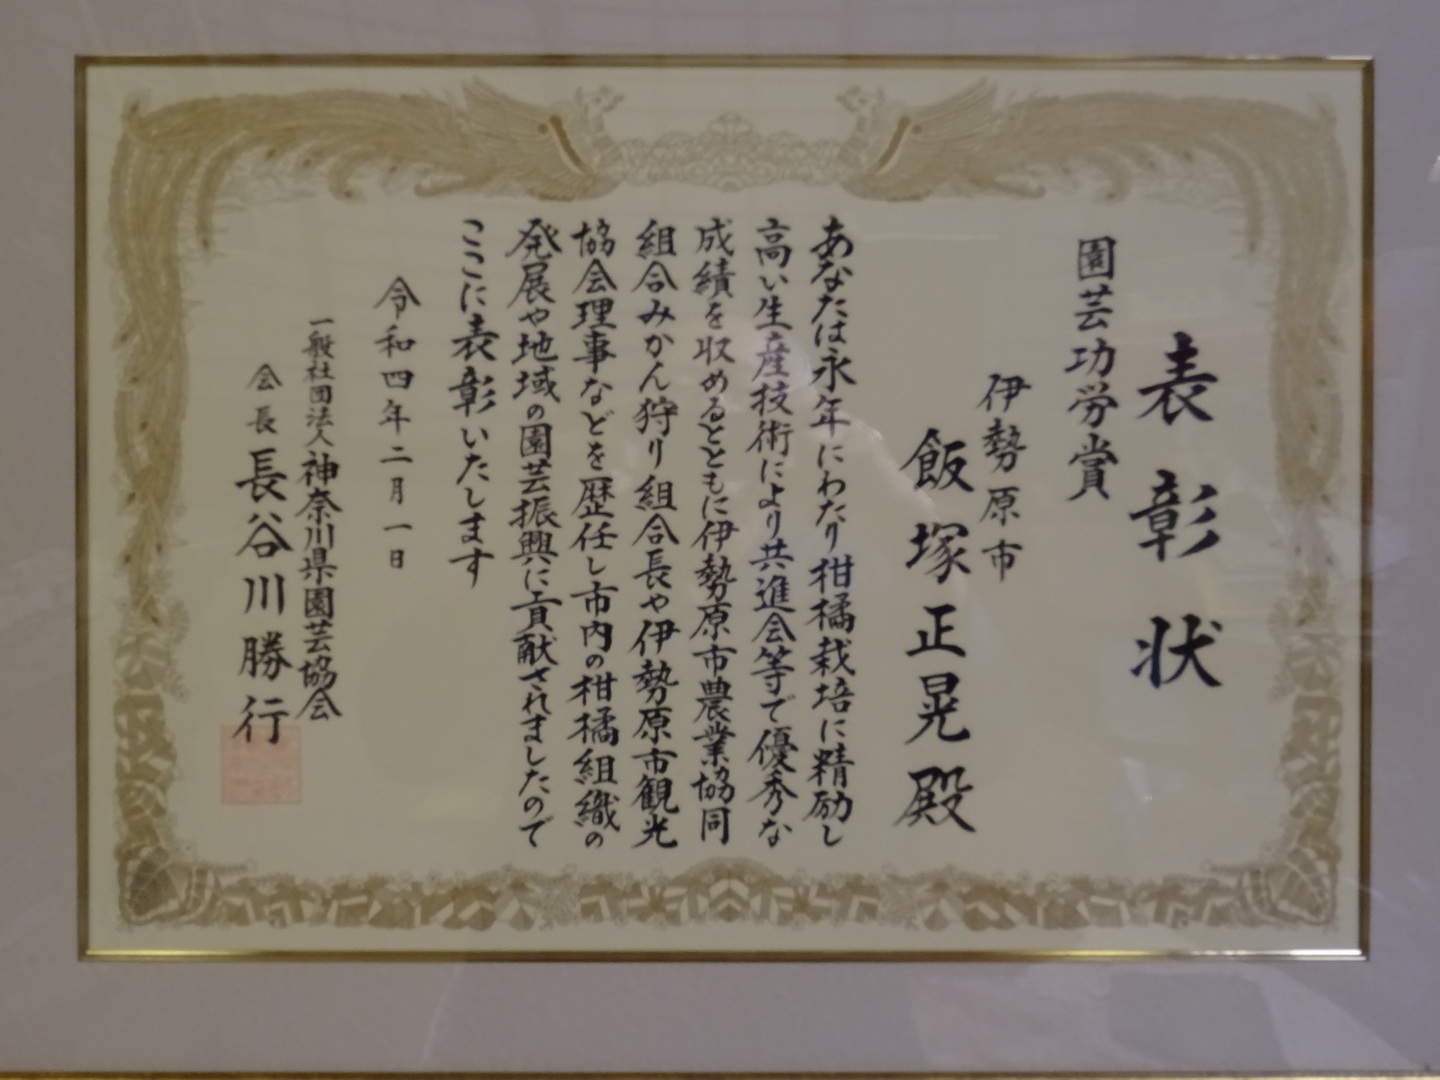 表彰状
園芸功労賞
伊勢原市
飯塚正晃殿
あなたは永年にわたり柑橘栽培に精励し
高い生産技術により共進会等で優秀な
成績を収めるとともに伊勢原市農業協同
組合みかん狩り組合長や伊勢原市観光
協会理事などを歴任し市内の柑橘組織の
発展や地域の園芸振興に貢献されましたので
ここに表彰いたします
令和四年二月一日
一般社団法人神奈川県園芸協会
会長長谷川勝行